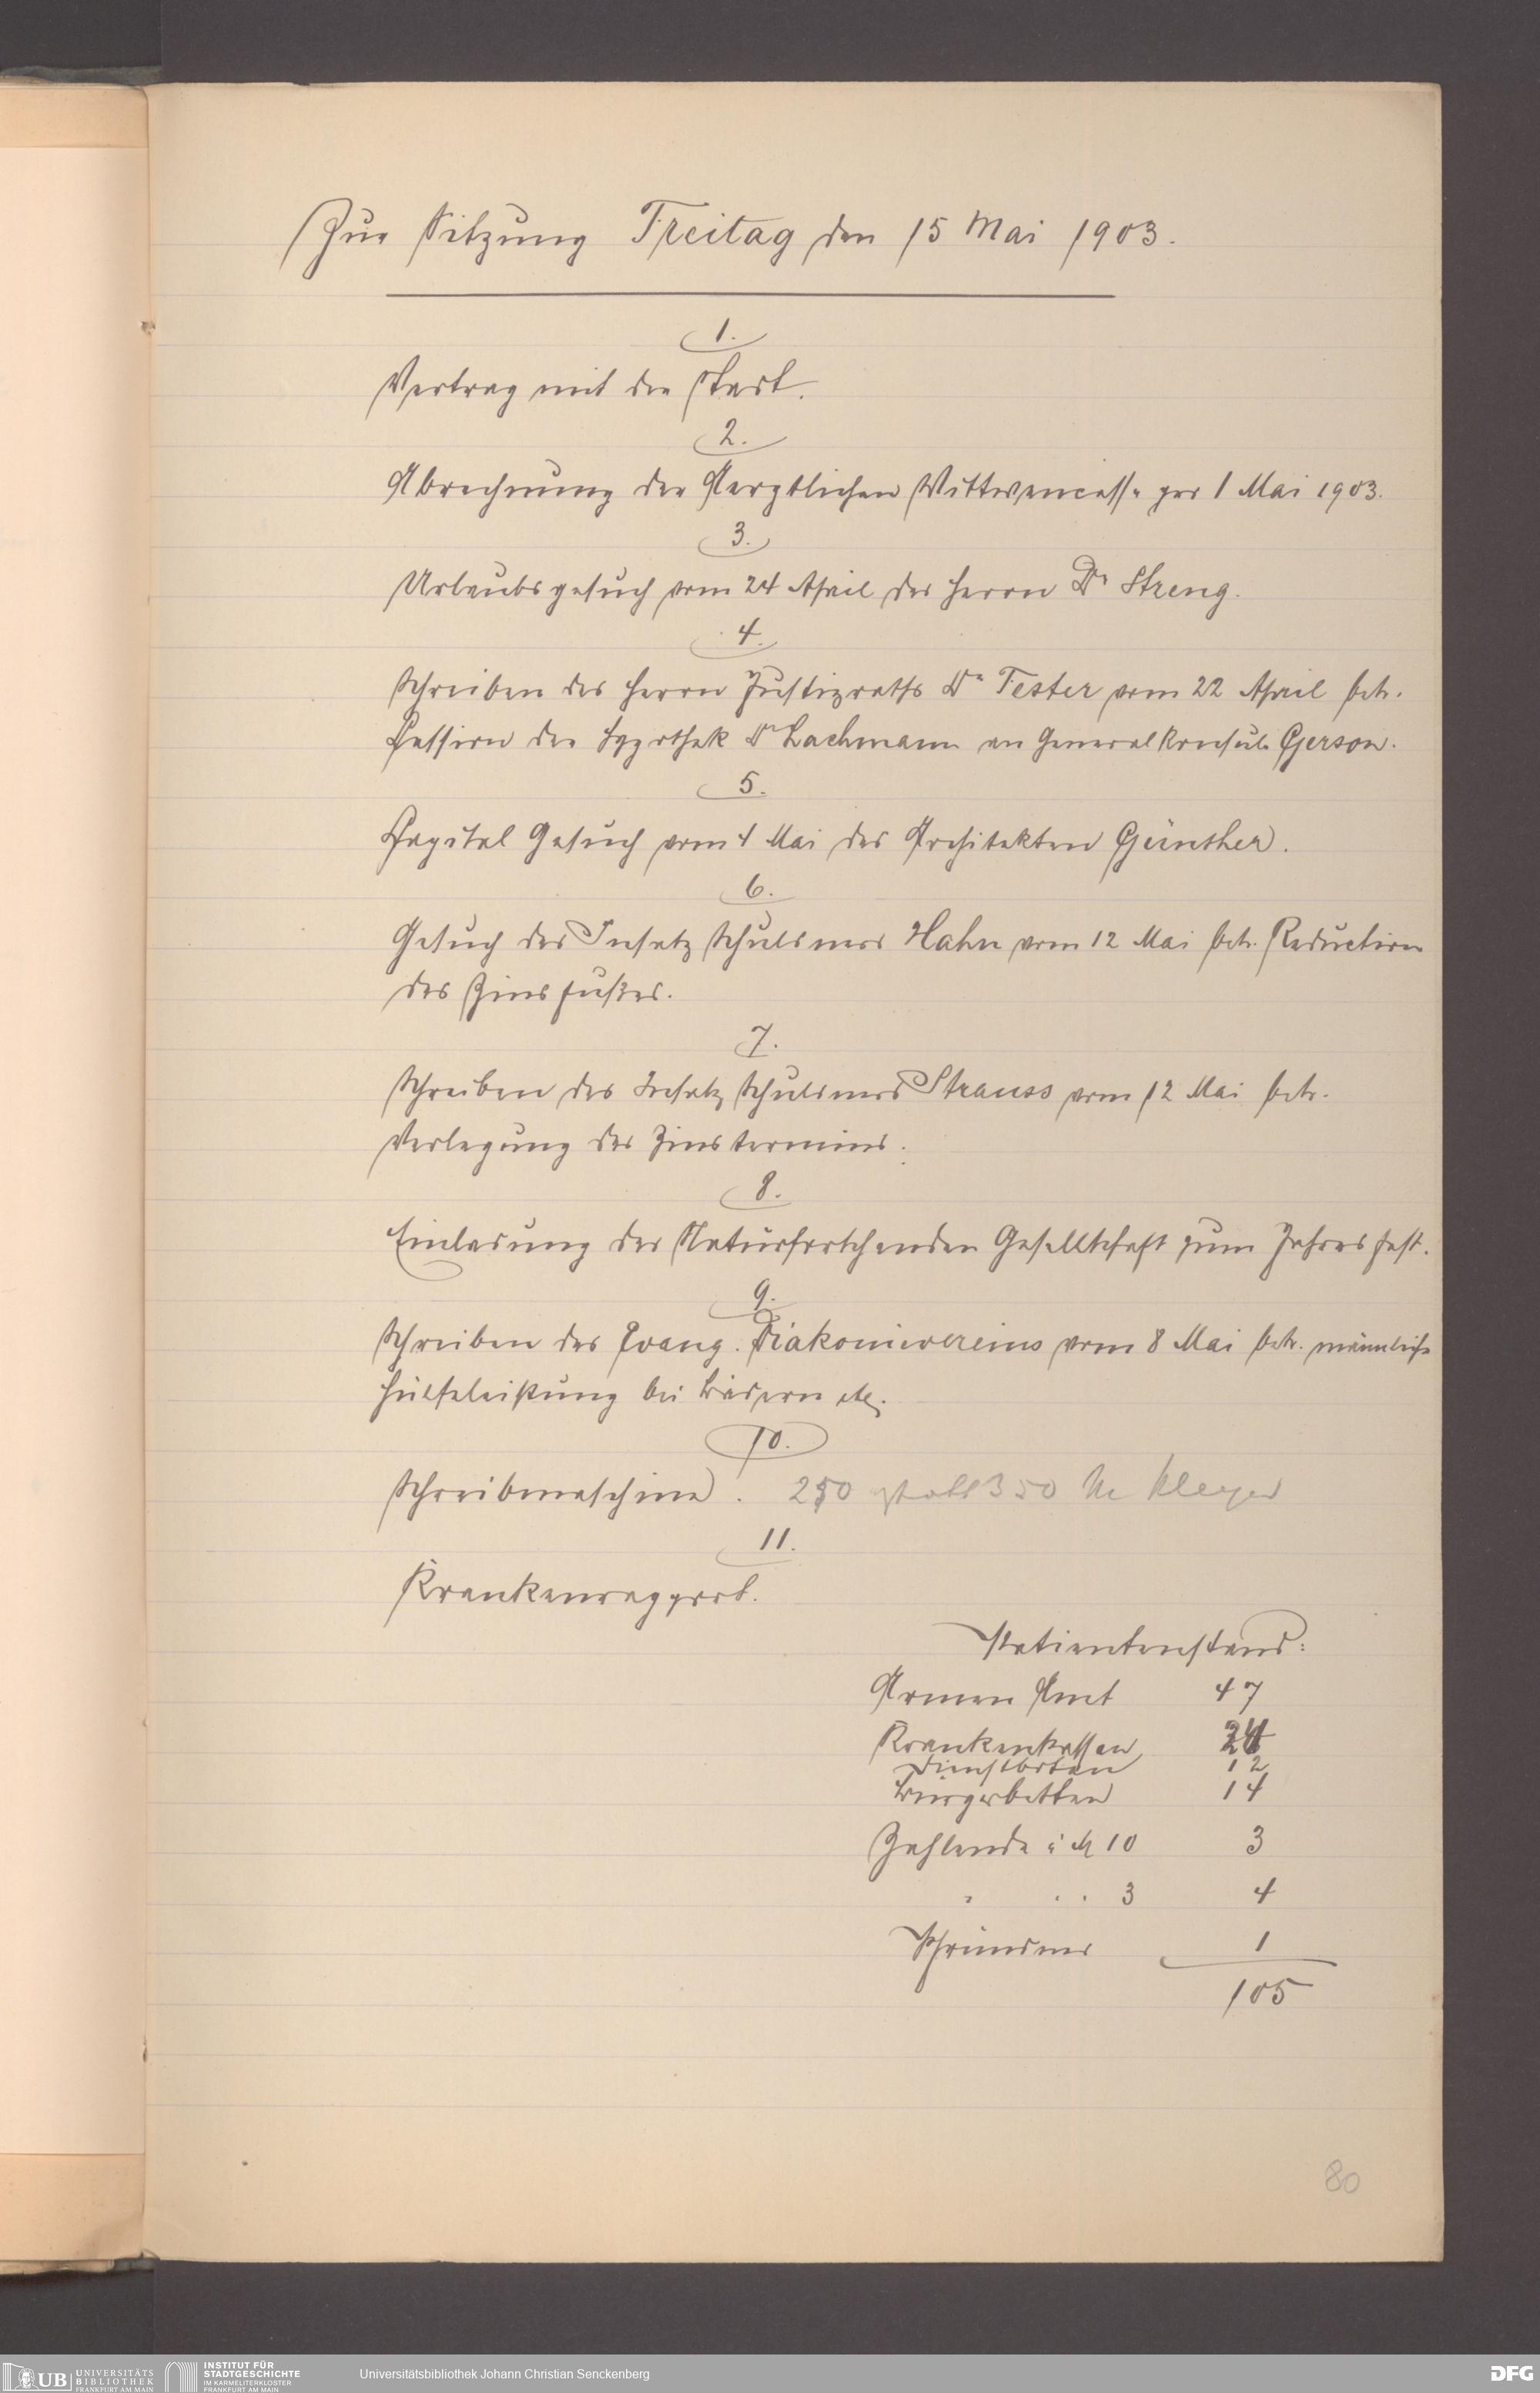 Zur Sitzung Freitag den 15 Mai 1903.
1.
Vertrag mit der Stadt.
2.
Abrechnung der Aerztlichen Wittwencasse per 1 Mai 1903.
3.
Urlaubsgesuch vom 24 April des Herrn Dr Streng.
4.
Schreiben des Herrn Justizraths Dr Fester vom 22 April betr.
Cession der Hypothek Dr Lachmann an Generalkonsul Gerson.
5.
Capital Gesuch vom 4 Mai des Architekten Günther.
6.
Gesuch des Insatz Schuldners Hahn vom 12 Mai betr. Reduction
des Zinsfußes.
7.
Schreiben des Insatz Schuldners Strauss vom 12 Mai betr.
Verlegung des Zinstermins.
8.
Einladung der Naturforschenden Gesellschaft zum Jahresfest.
9.
Schreiben des Evang. Diakonievereins vom 8 Mai betr. männliche
Hülfeleistung bei Bädern etc.
10.
Schreibmaschine. 250 statt 350 M Kleyer
11.
Krankenrapport.
Patientenstand:
Armen Amt 47
Krankenkassen 24
Dienstboten 12
Bürgerbetten 14
Zahlende à M 10 3
" " " 3 4
Pfründner 1
105
80
UB UNIVERSITÄTS
BIBLIOTHEK
FRANKFURT AM MAIN
INSTITUT FÜR
STADTGESCHICHTE
IM KARMELITERKLOSTER
FRANKFURT AM MAIN
Universitätsbibliothek Johann Christian Senckenberg
DFG